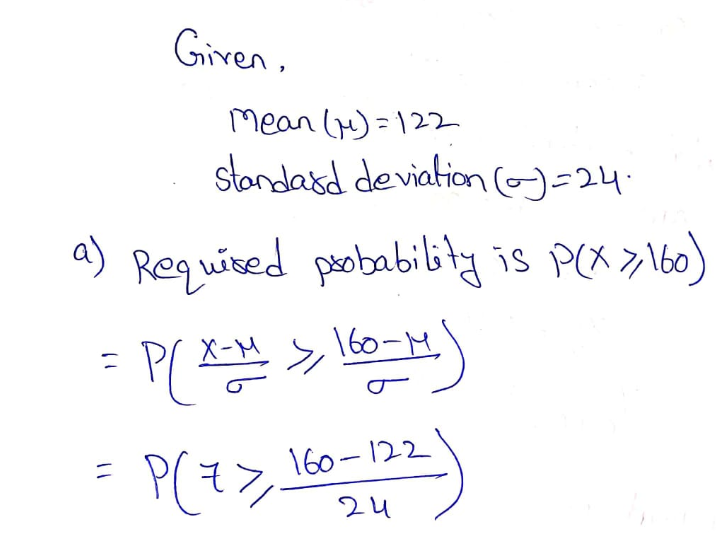 Given,
Mean (μ) = 122
Standard deviation (σ) = 24.
a) Required probability is P(X ≥ 160)
= P( (X-μ)/σ ≥ (160-μ)/σ )
= P( Z ≥ (160-122)/24 )